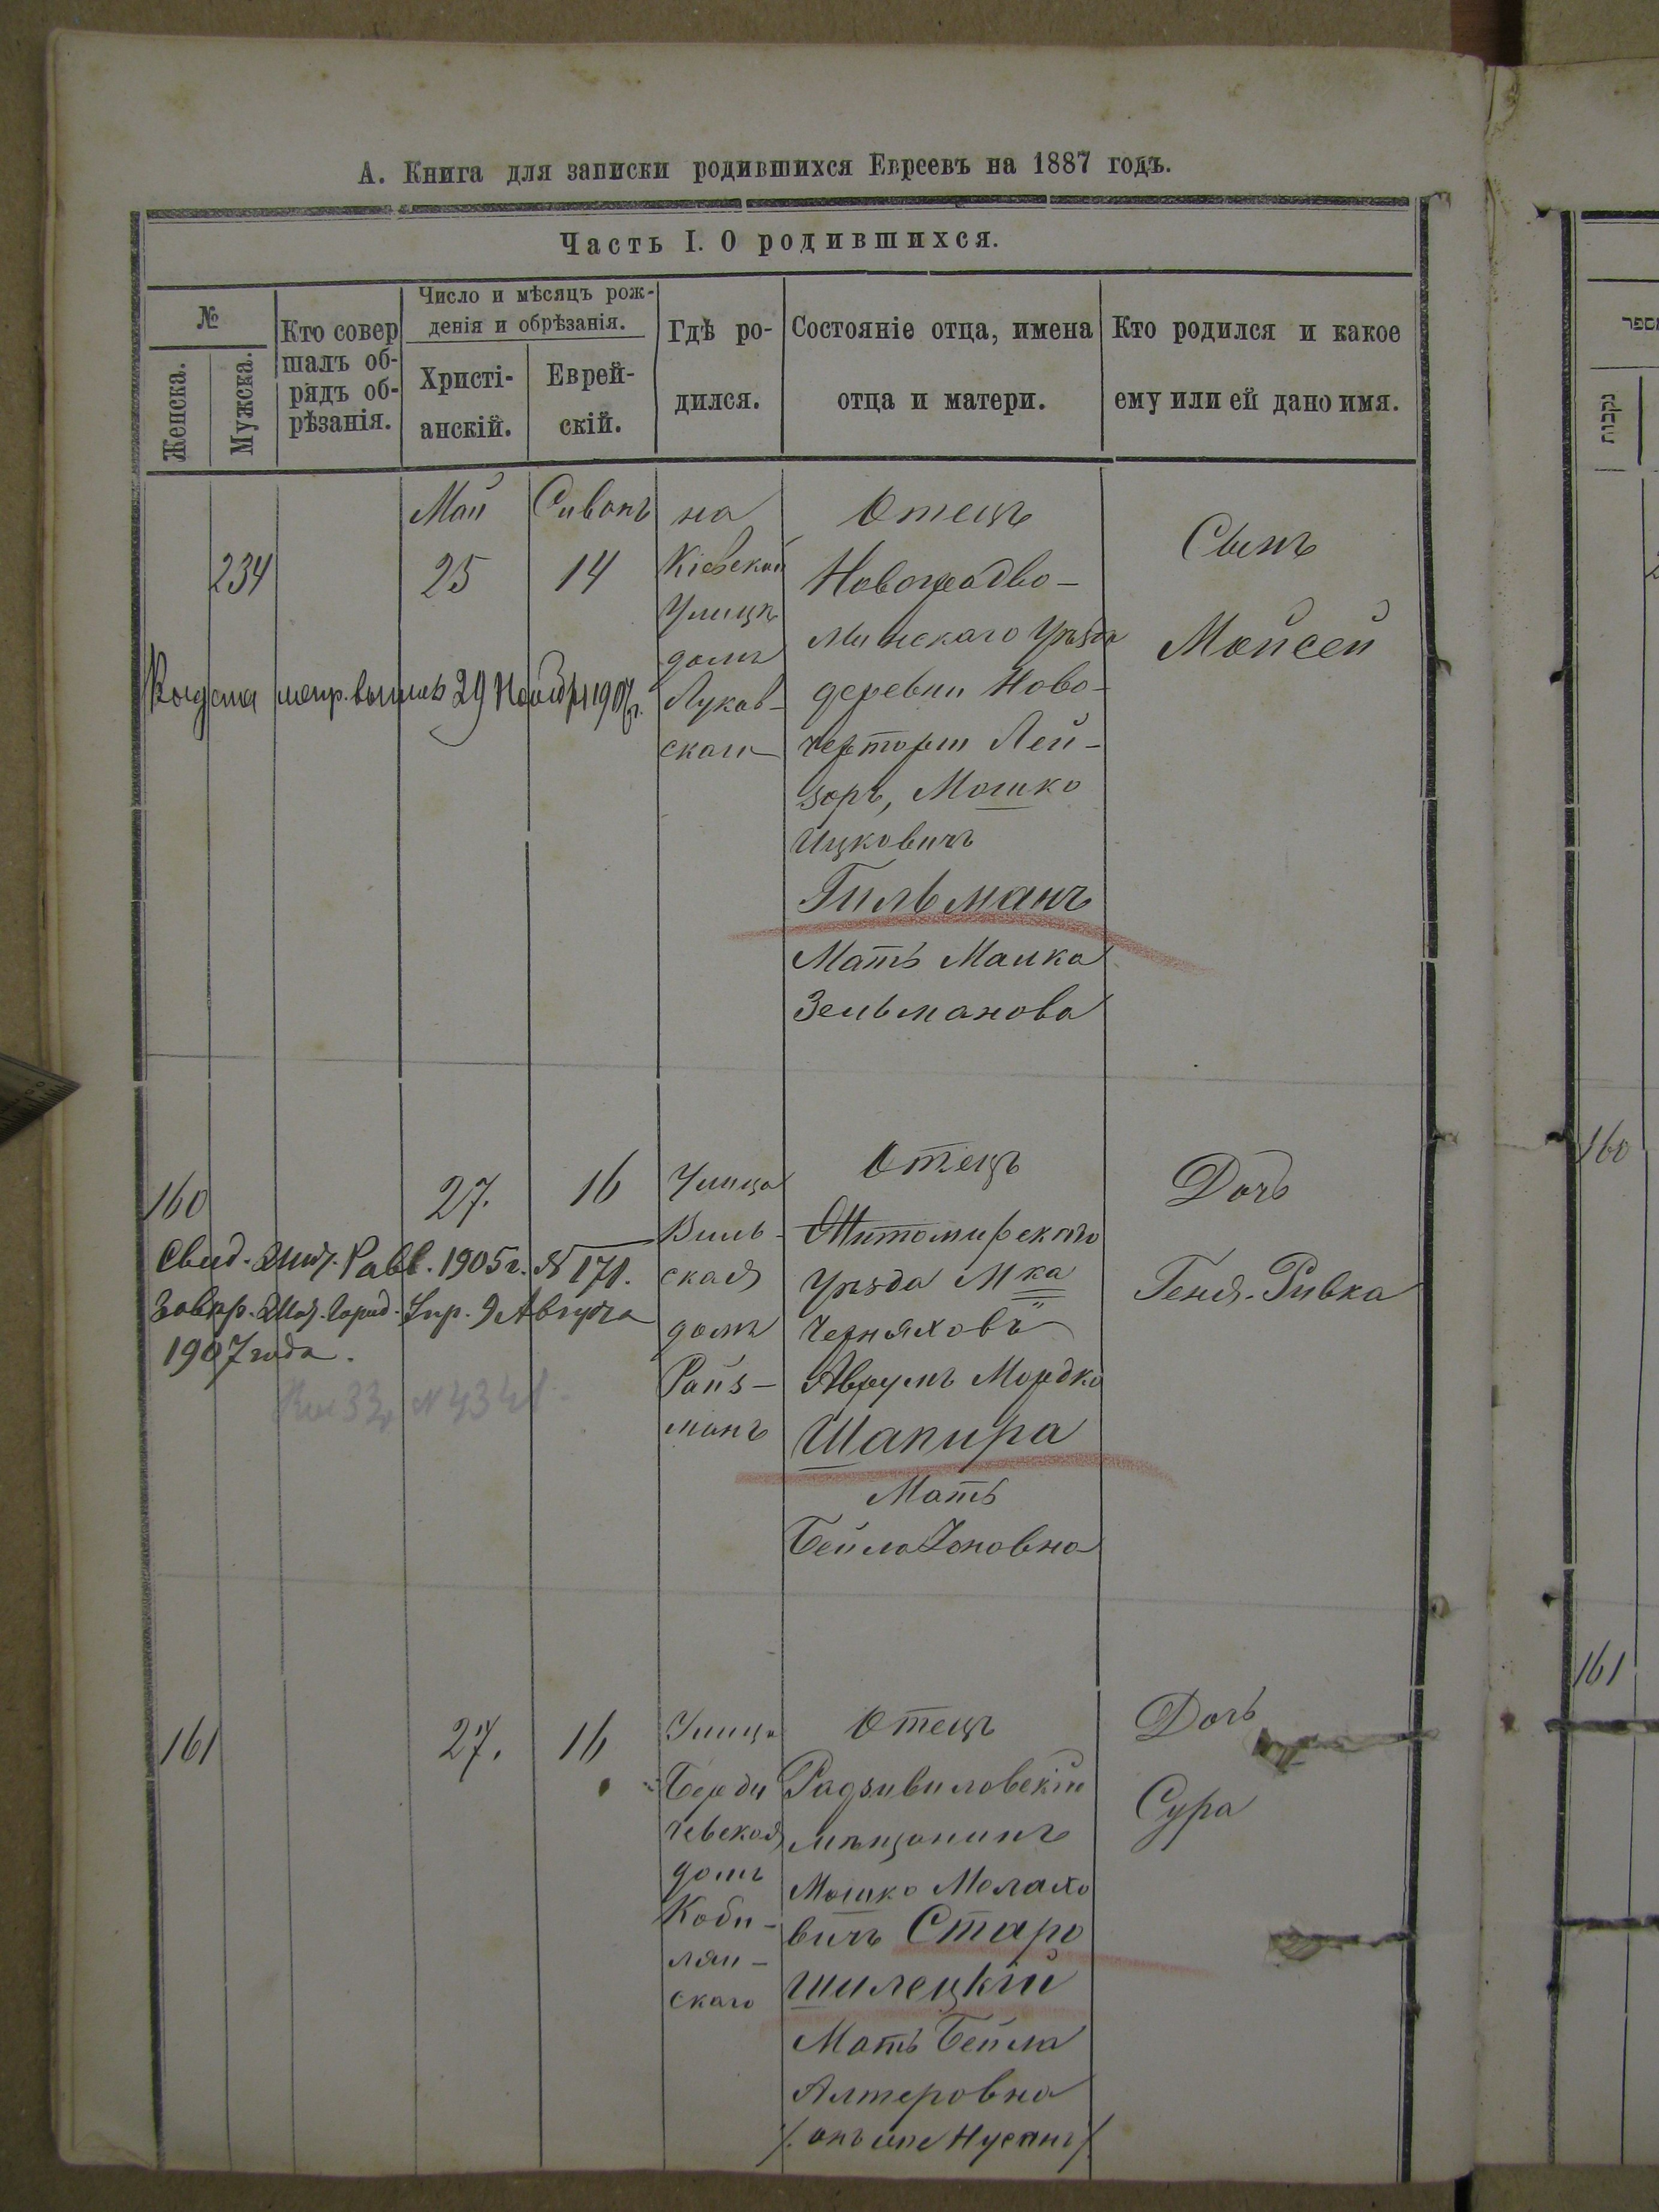 А. Книга для записки родившихся Евреевъ на 1887 годъ.
Часть I. О родившихся.
№
Женска.
Мужска.
Кто совер
шалъ об-
рядъ об-
рѣзанія.
Число и мѣсяцъ рож-
денія и обрѣзанія.
Христі-
анскій.
Еврей-
скій.
Гдѣ ро-
дился.
Состояніе отца, имена
отца и матери.
Кто родился и какое
ему или ей дано имя.
234
Май
25
Сиванъ
14
на
Кіевской
Улицѣ
домъ
Лукав-
скаго
Отецъ
Новоградво-
линскаго Уѣзда
деревни Ново-
черторіи Лей-
зоръ, Мошко
Ицковичъ
Гильманъ
Мать Малка
Зельманова
Сынъ
Мойсей
29 Ноября 1907 г.
160
27.
16
Свид. Жит. Равв. 1905 г. № 171.
Упр. 9 Августа
1907 года.
Улица
Виль-
ская
домъ
Райз-
манъ
Отецъ
Житомирскаго
Уѣзда М-ка
Черняховъ
Аврумъ Мордко
Шапира
Мать
Бейла Іоновна
Дочь
Геня-Ривка
161
27.
16
Улица
Берди
чевская
домъ
Коби-
лян-
скаго
Отецъ
Радзивиловскій
мѣщанинъ
Мошко Мелахо
вичъ Старо
шилецкій
Мать Бейла
Алтеровна
/. онъ же Нусинъ ./
Дочь
Сура
מספר
נקבות
160
161